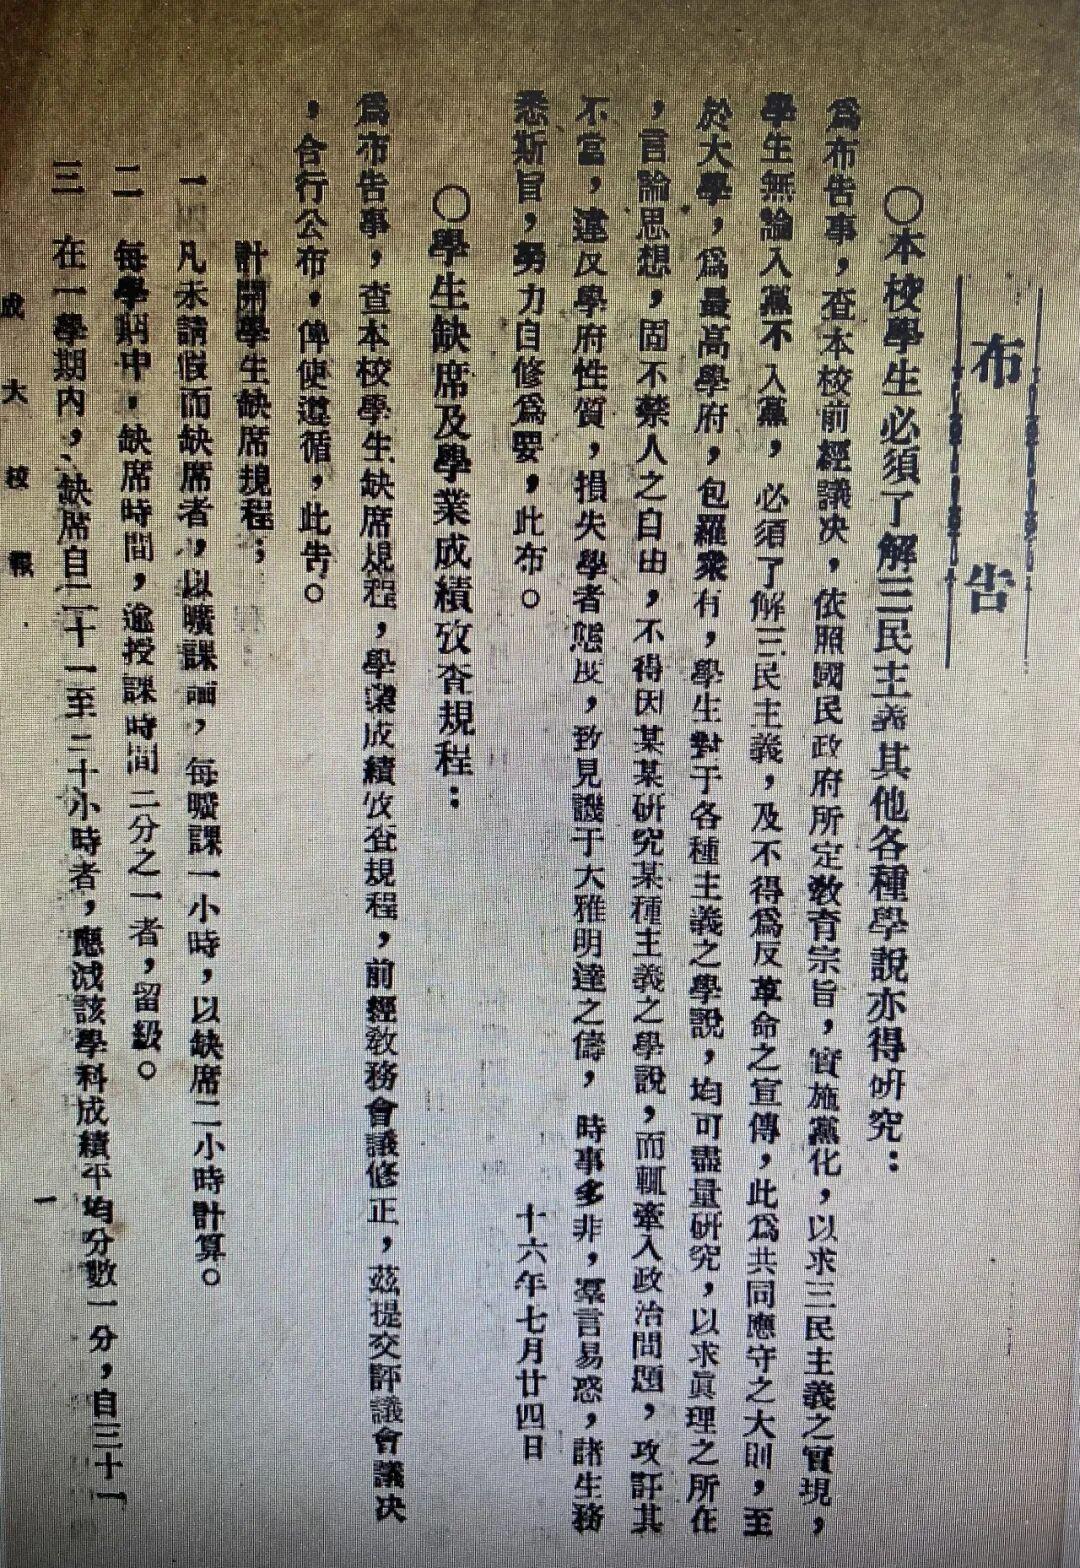 布告
〇本校學生必須了解三民主義其他各種學說亦得研究：
爲布告事，查本校前經議决，依照國民政府所定敎育宗旨，實施黨化，以求三民主義之實現，
學生無論入黨不入黨，必須了解三民主義，及不得爲反革命之宣傳，此爲共同應守之大則，至
於大學，爲最高學府，包羅衆有，學生對于各種主義之學說，均可盡量硏究，以求眞理之所在
，言論思想，固不禁人之自由，不得因某某硏究某種主義之學說，而輒牽入政治問題，攻訐其
不當，違反學府性質，損失學者態度，致見譏于大雅明達之儔，時事多非，羣言易惑，諸生務
悉斯旨，努力自修爲要，此布。
十六年七月廿四日
〇學生缺席及學業成績攷查規程：
爲布告事，查本校學生缺席規程，學業成績攷查規程，前經敎務會議修正，茲提交評議會議决
，合行公布，俾便遵循，此吿。
計開學生缺席規程；
一 凡未請假而缺席者，以曠課論，每曠課一小時，以缺席二小時計算。
二 每學期中，缺席時間，逾授課時間二分之一者，留級。
三 在一學期内，缺席自二十一至三十小時者，應减該學科成績平均分數一分，自三十一
成大校報
一